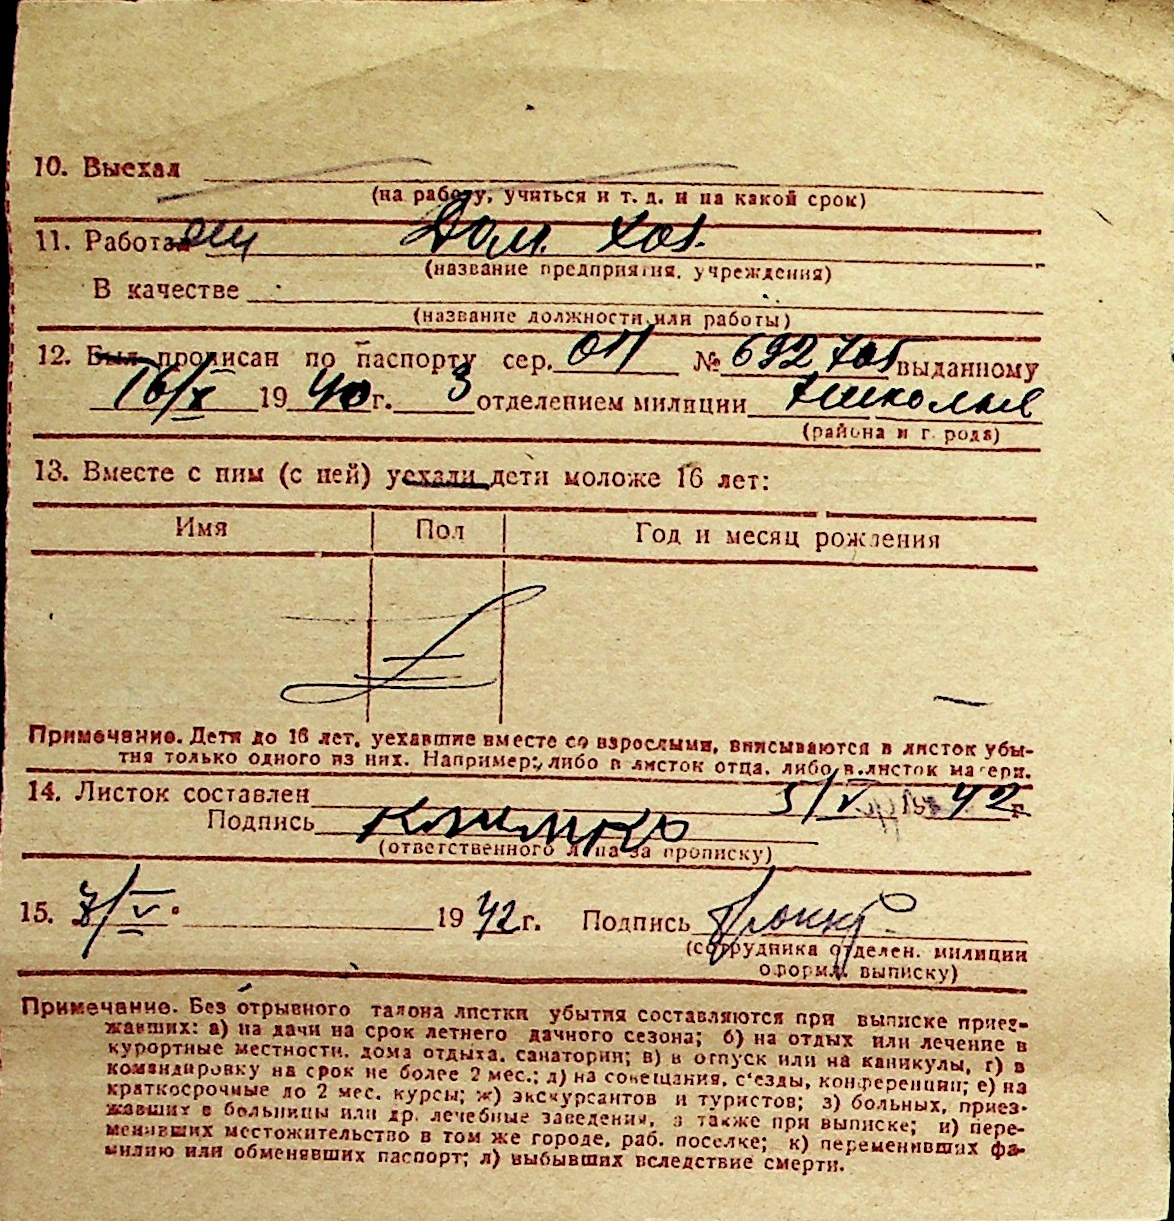 10. Выехал
(на работу, учиться и т. д. и на какой срок)
11. Работа Дом. хоз.
(название предприятия, учреждения)
В качестве
(название должности или работы)
12. Был прописан по паспорту сер. ОП № 692705 выданному
16/X 1940 г. 3 отделением милиции Николаев
(района и города)
13. Вместе с ним (с ней) уехали дети моложе 16 лет:
Имя Пол Год и месяц рождения
Примечание. Дети до 16 лет, уехавшие вместе со взрослыми, вписываются в листок убы-
тия только одного из них. Например: либо в листок отца, либо в листок матери.
14. Листок составлен 5/V 42 г.
Подпись
(ответственного лица за прописку)
15. 7/V 1942 г. Подпись
(сотрудника отделен. милиции
оформл. выписку)
Примечание. Без отрывного талона листки убытия составляются при выписке приез-
жавших: а) на дачи на срок летнего дачного сезона; б) на отдых или лечение в
курортные местности, дома отдыха, санатории; в) в отпуск или на каникулы, г) в
командировку на срок не более 2 мес.; д) на совещания, с'езды, конференции; е) на
краткосрочные до 2 мес. курсы; ж) экскурсантов и туристов; з) больных, приез-
жавших в больницы или др. лечебные заведения, а также при выписке; и) пере-
менивших местожительство в том же городе, раб. поселке; к) переменивших фа-
милию или обменявших паспорт; л) выбывших вследствие смерти.